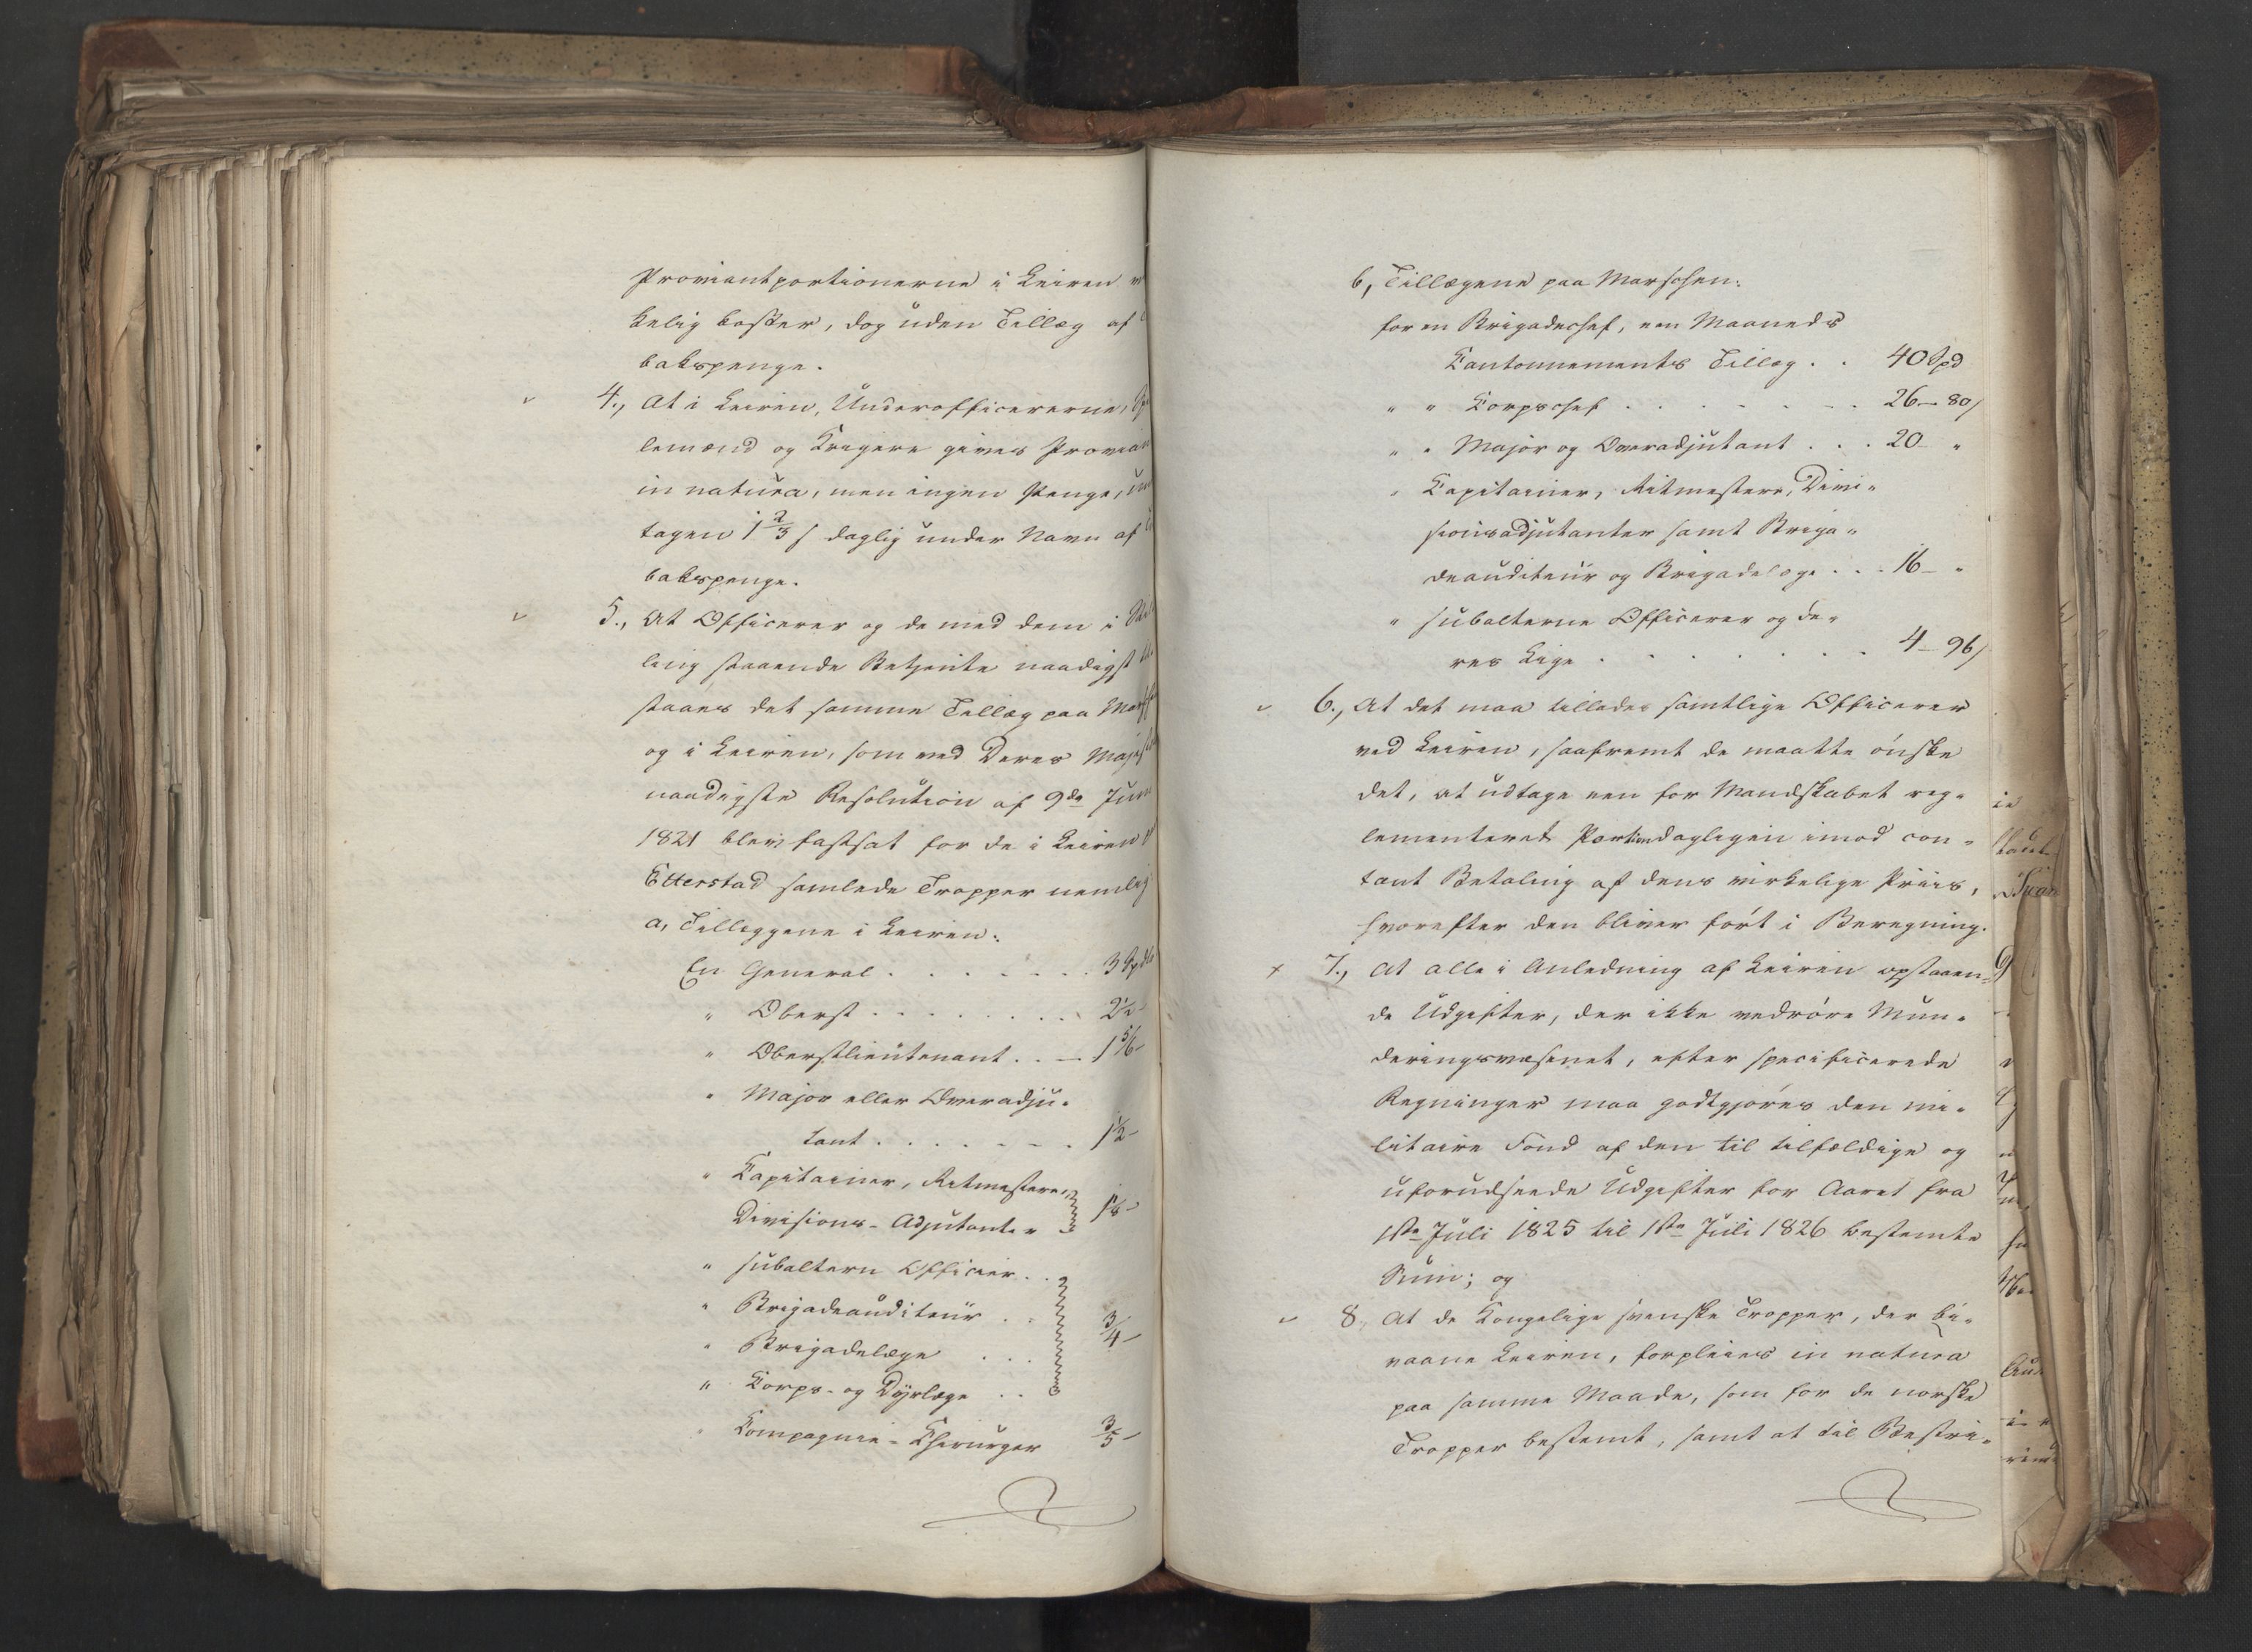 Proviantportionerne i Leiren
kelig koster, dog uden Tillæg af
bakspenge.
4., At i Leiren, Underofficererne,
lemænd og Krigere gives Provian
in natura, men ingen Penge, und
tagen 1 2/3 s daglig under Navn af
bakspenge.
5., At Officerer og de med dem i
ling staaende Betjente naadigst
staaes det samme Tillæg paa
og i Leiren, som ved Deres Maje
naadigste Resolution af 9de Juni
1821 blev fastsat for de i Leiren
Etterstad samlede Tropper nemlig
a, Tillæggene i Leiren:
En General . . . . . . . 3 Spd
" Oberst . . . . . . . . 2½ -
" Oberstlieutenant . . — 1 5/6 -
" Major eller Overadju-
tant . . . . . . . 1½ -
" Capitainer, Ritmestere,
Divisions-Adjutanter
" subaltern Officier . .
" Brigadeauditeur . .
" Brigadelæge . . . ¾ -
" Corps- og Dyrlæge . .
" Compagnie-Chirurger 3/5 -
b, Tillægene paa Marschen:
for en Brigadechef, een Maaneds
Cantonnements Tillæg . . 40 Spd
" " Corpschef . . . . . . . 26 - 80 s
" " Major og Overadjutant . . . 20 "
" Capitainer, Ritmestere, Divi-
sionsadjutanter samt Briga-
deauditeur og Brigadelæge . . . 16 - "
" subalterne Officerer og de-
res Lige . . . . . . . 4 - 96 s
6., At det maa tillades samtlige Officerer
ved Leiren, saafremt de maatte ønske
det, at udtage een for Mandskabet reg-
lementeret Portion dagligen imod con-
tant Betaling af dens virkelige Priis,
hvorefter den bliver ført i Beregning.
7., At alle i Anledning af Leiren opstaaen-
de Udgifter, der ikke vedrøre Mun-
deringsvæsenet, efter specificerede
Regninger maa godtgjøres den mi-
litaire Fond af den til tilfældige og
uforudseede Udgifter for Aaret fra
1ste Juli 1825 til 1ste Juli 1826 bestemte
Sum; og
8, At de Kongelige svenske Tropper, der bi-
vaane Leiren, forpleies in natura
paa samme Maade, som for de norske
Tropper bestemt, samt at til Bestri-